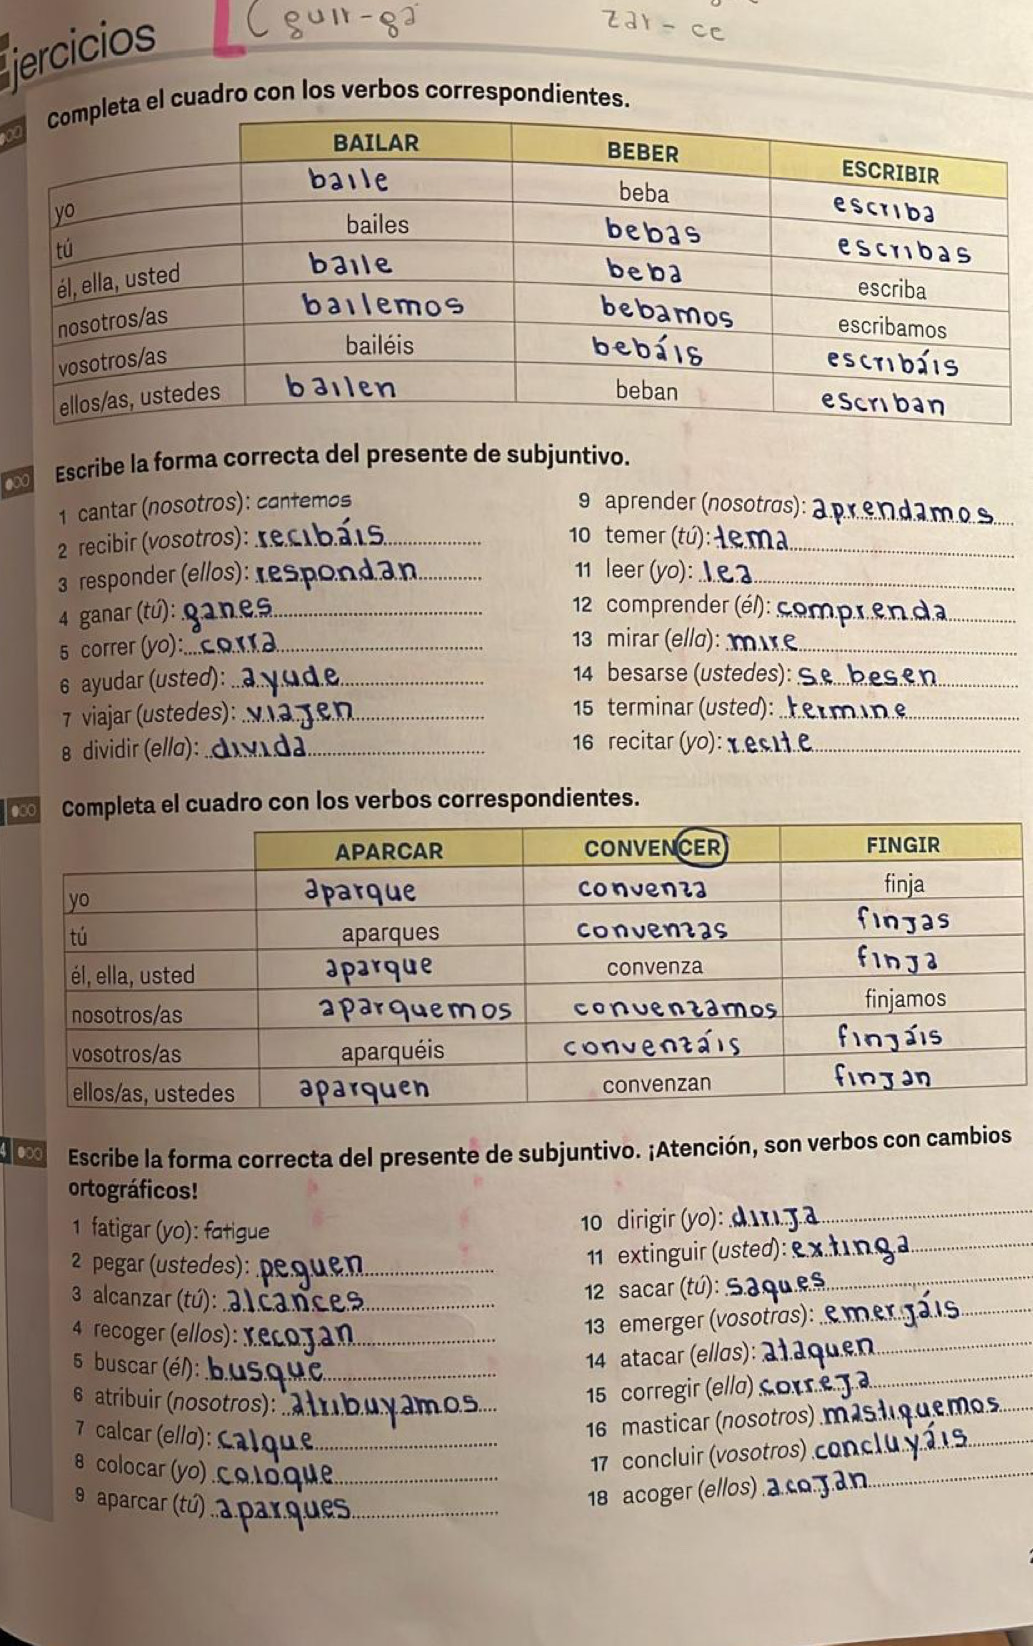 ( guir-ga zar - ce
Ejercicios
Completa el cuadro con los verbos correspondientes.
BAILAR BEBER ESCRIBIR
yo baile beba escriba
tú bailes bebas escribas
él, ella, usted baile beba escriba
nosotros/as bailemos bebamos escribamos
vosotros/as bailéis bebáis escribáis
ellos/as, ustedes bailen beban escriban
Escribe la forma correcta del presente de subjuntivo.
1 cantar (nosotros): cantemos
2 recibir (vosotros): recibáis
3 responder (ellos): respondan
4 ganar (tú): ganes
5 correr (yo): corra
6 ayudar (usted): ayude
7 viajar (ustedes): viajen
8 dividir (ella): divida
9 aprender (nosotras): aprendamos
10 temer (tú): tema
11 leer (yo): lea
12 comprender (él): comprenda
13 mirar (ella): mire
14 besarse (ustedes): se besen
15 terminar (usted): termine
16 recitar (yo): recite
Completa el cuadro con los verbos correspondientes.
APARCAR CONVENCER FINGIR
yo aparque convenza finja
tú aparques convenzas finjas
él, ella, usted aparque convenza finja
nosotros/as aparquemos convenzamos finjamos
vosotros/as aparquéis convenzáis finjáis
ellos/as, ustedes aparquen convenzan finjan
4 Escribe la forma correcta del presente de subjuntivo. ¡Atención, son verbos con cambios
ortográficos!
1 fatigar (yo): fatigue
2 pegar (ustedes): peguen
3 alcanzar (tú): alcances
4 recoger (ellos): recojan
5 buscar (él): busque
6 atribuir (nosotros): atribuyamos
7 calcar (ella): calque
8 colocar (yo) coloque
9 aparcar (tú) aparques
10 dirigir (yo): dirija
11 extinguir (usted): extinga
12 sacar (tú): saques
13 emerger (vosotras): emerjáis
14 atacar (ellas): ataquen
15 corregir (ella) correja
16 masticar (nosotros) mastiquemos
17 concluir (vosotros) concluyáis
18 acoger (ellos) acojan